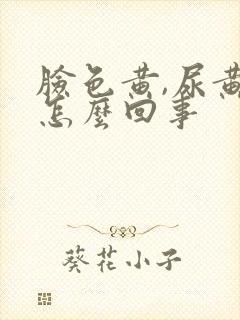 臉色黃,尿黃
怎麼回事
葵花小子